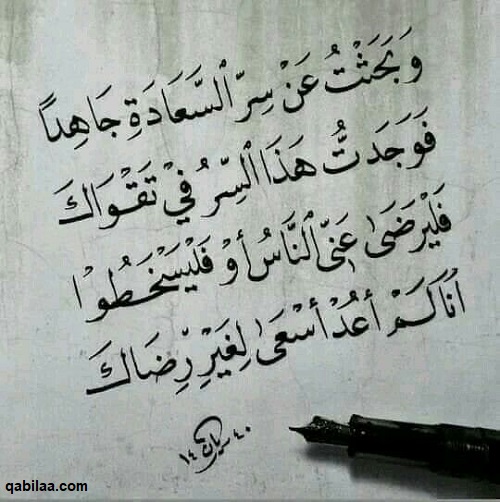 وَبَحَثْتُ عَنْ سِرِّ ٱلسَّعَادَةِ جَاهِدًا
فَوَجَدتُّ هَذَا ٱلسِّرُ فِيْ تَقْوَاكَ
فَلْيَرْضَىٰ عَنِّى ٱلنَّاسُ أَوْ فَلْيَسْخَطُوْا
أَنَا كَمْ أَعُدْ أَسْعَىٰ لِغَيْرِ رِضَاكَ
qabilaa.com